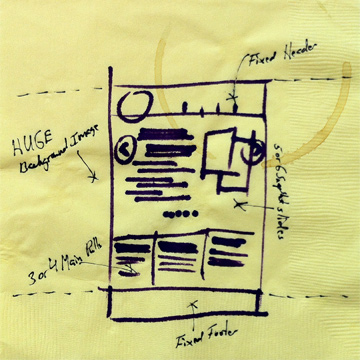 Fixed Header
HUGE
Background Image
5 or 6 slides
3 or 4 Main Pulls
Fixed Footer